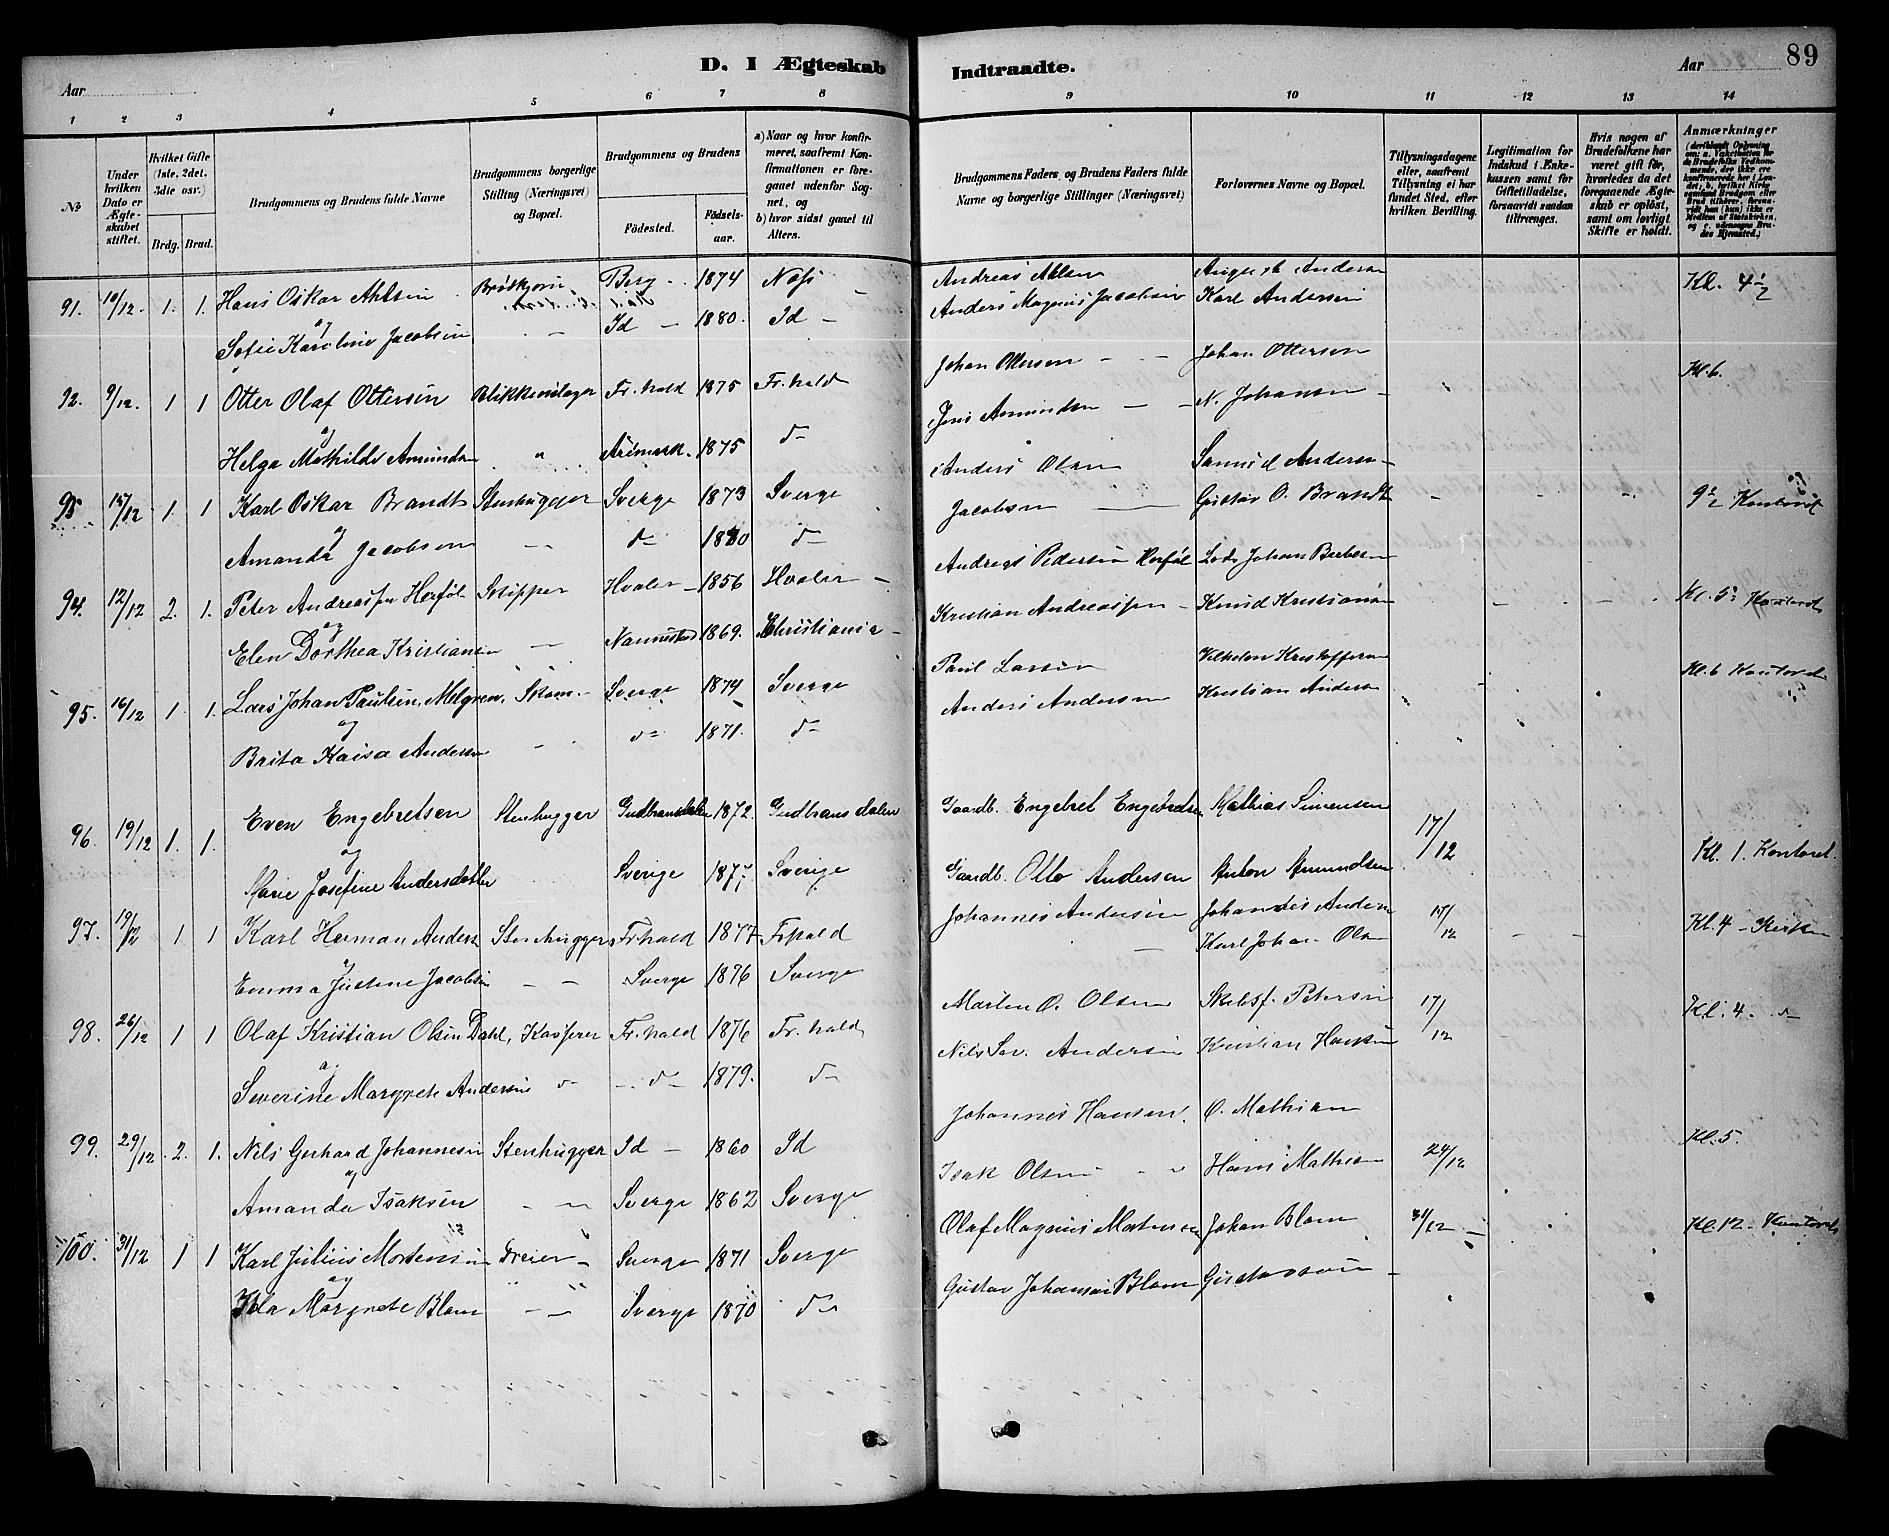 D. I Ægteskab Indtraadte.
Aar
Aar 89
1 2 3 4 5 6 7 8 9 10 11 12 13 14
No
Under hvilken Dato er Ægteskabet stiftet.
Hvilket Gifte (1ste, 2det, 3die osv.)
Brdg. Brud.
Brudgommens og Brudens fulde Navne
Brudgommens borgerlige Stilling (Næringsvei) og Bopæl.
Brudgommens og Brudens
Födested. Födselsaar.
a) Naar og hvor konfirmeret, saafremt Konfirmationen er foregaaet udenfor Sognet, og
b) hvor sidst gaaet til Alters.
Brudgommens Faders, og Brudens Faders fulde Navne og borgerlige Stillinger (Næringsvei)
Forlovernes Navne og Bopæl.
Tillysningsdagene eller, saafremt Tillysning ei har fundet Sted, efter hvilken Bevilling.
Legitimation for Indskud i Enkekassen samt for Giftetilladelse, forsaavidt saadan tiltrænges.
Hvis nogen af Brudefolkene har været gift før, hvorledes da det foregaaende Ægteskab er opløst, samt om lovligt Skifte er holdt.
Anmærkninger
91. 10/12. 1. 1. Hans Oskar Ahlsen Berg 1874 Næs Andreas Ahlsen August Anderse Kl. 4½
og Anders Magnus Jacobsen Karl Andersen
Sofie Karoline Jacobsen Id 1880. Id
92. 9/12. 1 1 Otter Olaf Ottersen Blikkenslager Fr.hald 1875 Fr.hald Johan Ottersen Johan Ottersen Kl. 6.
og Jens Amundsen N. Johansen
Helga Mathilde Amundsen " Aremark. 1875 do
93 15/12 1. 1 Karl Oskar Brandt Stenhugger Sverge 1873 Sverge Anders Olsen Samuel Anderse 9½ Kontoret
og Jacobsen Gustav O. Brandt
Amanda Jacobsen do 1880 do
94. 12/12 2. 1. Peter Andreassen Herføl Skipper Hvaler 1856 Hvaler Andreas Pedersen Herføl Lods Johan Kl. 5 Kontoret
og Kristian Andreassen Knud Kristianse
Elen Dorthea Kristiansen Nannestad 1869. Christiania
95. 16/12 1. 1. Lars Johan Paulsen Melgren, Skom. Sverge 1874 Sverge Paul Larsen Vilhelm Kristofferse Kl. 6 Kontoret
og Anders Andersen Kristian Anderse
Brita Kaisa Anderse do 1871. do
96. 19/12 1. 1. Even Engebretsen Stenhugger Gudbransdalen 1872. Gudbransdalen Gaardb. Engebret Engebretsen Mathias Simensen 17/12 Kl. 1. Kontoret.
og
Marie Josefine Andersdatter Sverige 1877 Sverige Gaardb. Otto Andersen Anton Amundsen
97. 19/12 1 1 Karl Herman Anderse Stenhugger Frhald 1877 Frhald Johannes Andersen Johannes Anderse 17/12 Kl. 4 Kirken
og Karl Johan Olse
Emma Justine Jacobsen Sverge 1876 Sverge
98. 26/12 1 1 Olaf Kristian Olsen Dahl, Kasserer Fr.hald 1876 Fr.hald Marten O. Olsen Skibsf. Petersen 17/12 Kl. 4. do
og Nils Sev. Andersen Kristian
Severine Margrete Andersen do do 1879. do
99. 29/12 2. 1. Nils Gerhard Johannesen Stenhugger Id 1860 Id Johannes Hansen. O. Mathisen Kl. 5.
og Isak Olsen Hans Mathisen 24/12
Amanda Isaksen Sverge 1862 Sverge
100. 31/12 1 1 Karl Julius Mortensen Dreier Sverge 1871 Sverge Olaf Magnus Mortensen Johan Blom 31/12 Kl. 12 Kontoret
og Gustav Johansen Blom Gustavson
Ida Margrete Blom Sverge 1870 do